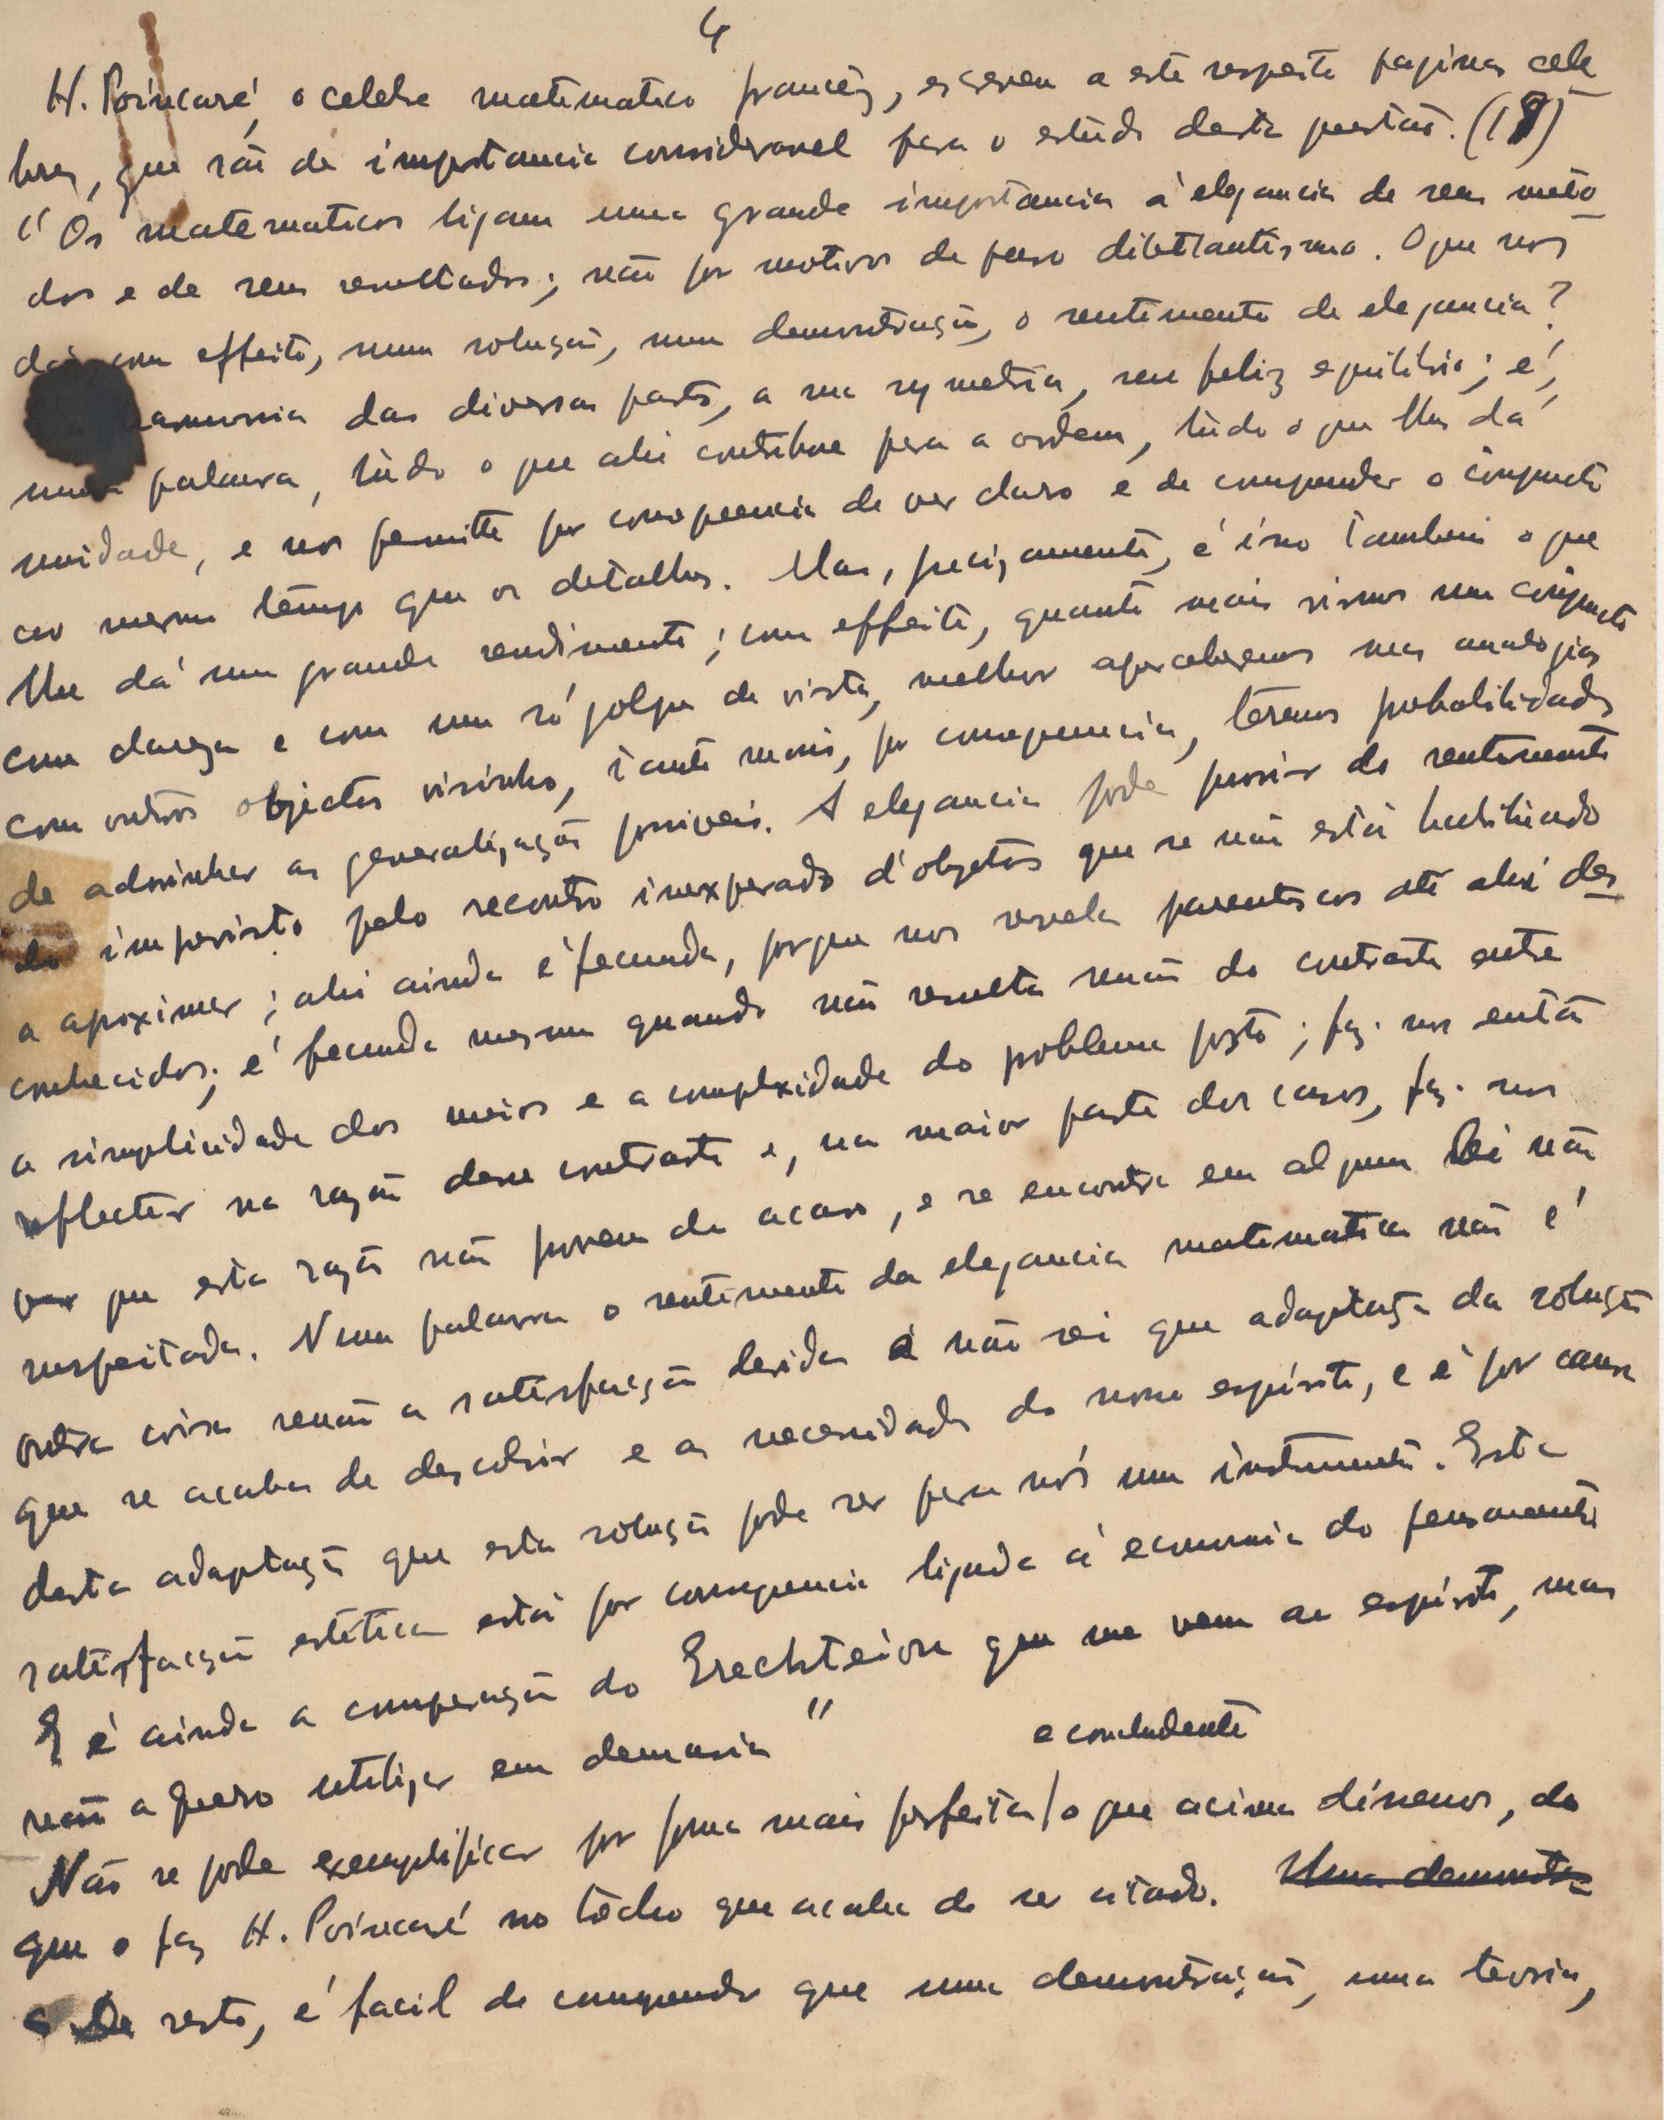 4
H. Poincaré, o celebre matematico francêz, escreveu a este respeito paginas cele
bres, que são de importancia consideravel para o estudo desta questão. (17)
"Os matematicos ligam uma grande importancia á elegancia de seus meto
dos e de seus resultados; não por motivos de puro dilettantismo. O que nos
dá, com effeito, numa solução, numa demonstração, o sentimento de elegancia?
harmonia das diversas partes, a sua symetria, seu feliz equilibrio; é,
numa palavra, tudo o que ahi contribue para a ordem, tudo o que lhes dá
unidade, e nos permitte por consequencia de ver claro e de comprender o conjuncto
ao mesmo tempo que os detalhes. Mas, precizamente, é isso tambem o que
lhe dá um grande rendimento; com effeito, quanto mais virmos um conjuncto
com clareza e com um só golpe de vista, melhor aperceberemos suas analogias
com outros objectos visinhos, tanto mais, por consequencia, teremos probabilidades
de adivinhar as generalizações possiveis. A elegancia pode provir do sentimento
do imprevisto pelo recontro inexperado d'objetos que se não está habituado
a aproximar; ahi ainda é fecunda, porque nos revela parentescos até ahi des
conhecidos; é fecunda mesmo quando não resulta senão do contraste entre
a simplicidade dos meios e a complexidade do problema posto; faz-nos então
reflectir na razão desse contraste e, na maior parte dos casos, faz-nos
ver que esta razão não provem do acaso, e se encontra em alguma lei não
suspeitada. Numa palavra o sentimento da elegancia matematica não é
outra coisa senão a satisfação devida á não sei que adaptação da solução
que se acaba de descobrir e as necessidades do nosso espirito, e é por causa
desta adaptação que esta solução pode ser para nós um instrumento. Esta
satisfação estética está por consequencia ligada á economia do pensamento
E é ainda a comparação do Erechteion que me vem ao espirito, mas
não a quero utilizar em demasia"
e concludente
Não se pode exemplificar por forma mais perfeita/o que acima dissemos, do
que o faz H. Poincaré no trêcho que acaba de ser citado. Uma demonstra
De resto, é facil de comprender que uma demonstração, uma teoria,